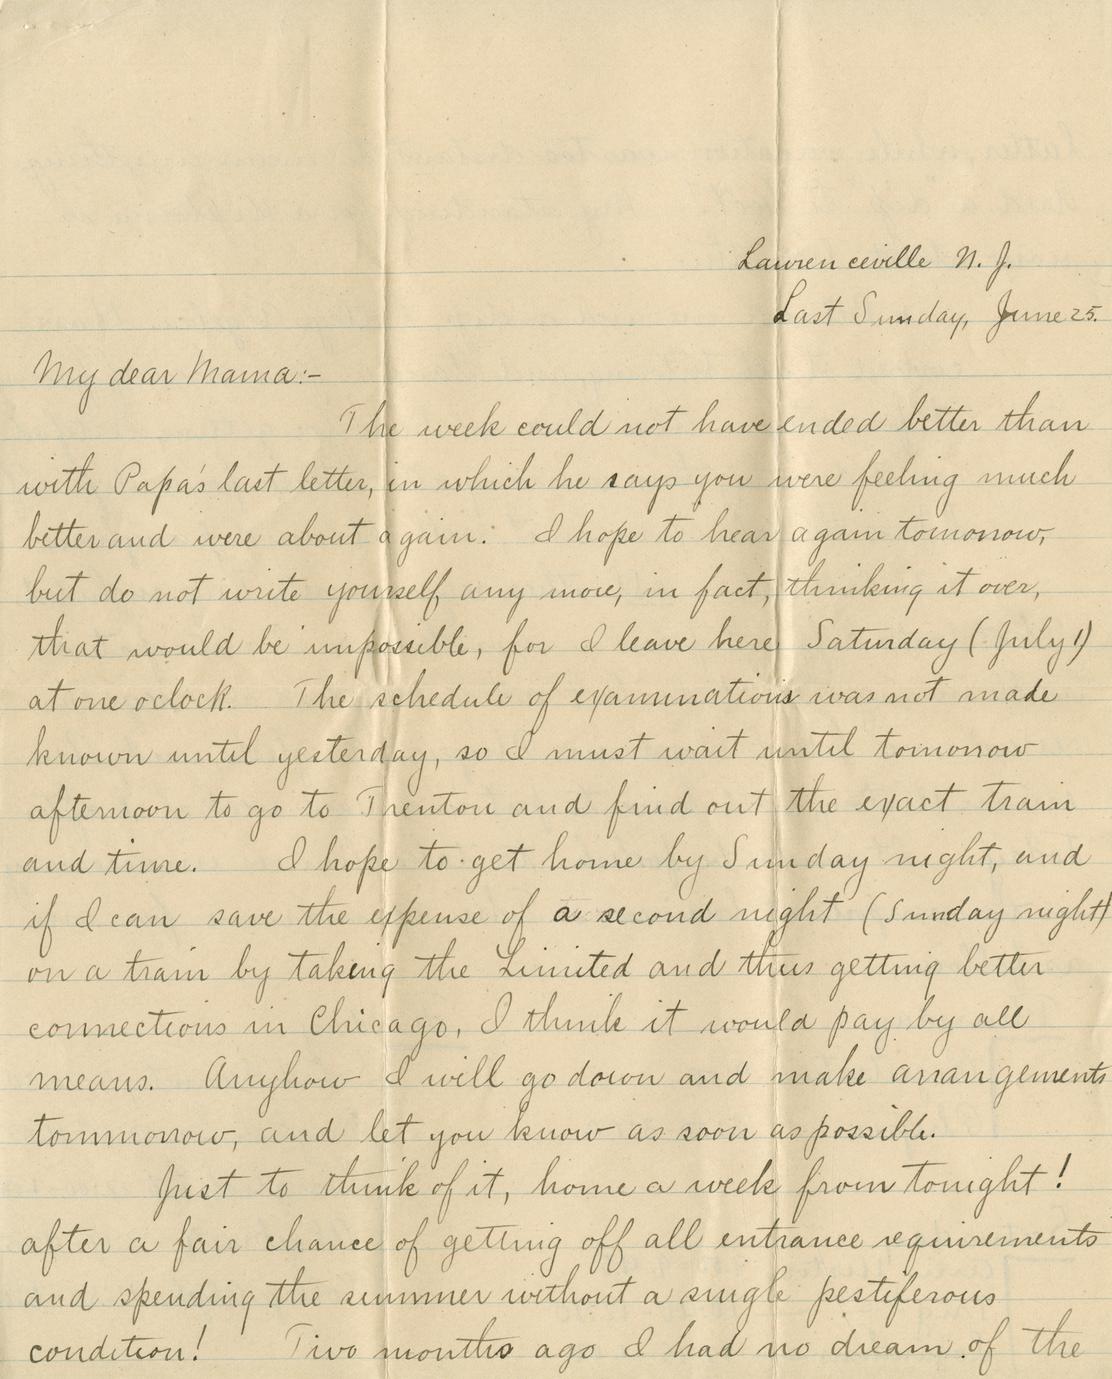 Lawrenceville N. J.
Last Sunday, June 25.
My dear Mama:-
The week could not have ended better than
with Papa's last letter, in which he says you were feeling much
better and were about again. I hope to hear again tomorrow,
but do not write yourself any more, in fact, thinking it over,
that would be impossible, for I leave here Saturday (July 1)
at one oclock. The schedule of examinations was not made
known until yesterday, so I must wait until tomorrow
afternoon to go to Trenton and find out the exact train
and time. I hope to get home by Sunday night, and
if I can save the expense of a second night (Sunday night)
on a train by taking the Limited and thus getting better
connections in Chicago, I think it would pay by all
means. Anyhow I will go down and make arrangements
tommorrow, and let you know as soon as possible.
Just to think of it, home a week from tonight!
after a fair chance of getting off all entrance requirements
and spending the summer without a single pestiferous
condition! Two months ago I had no dream of the